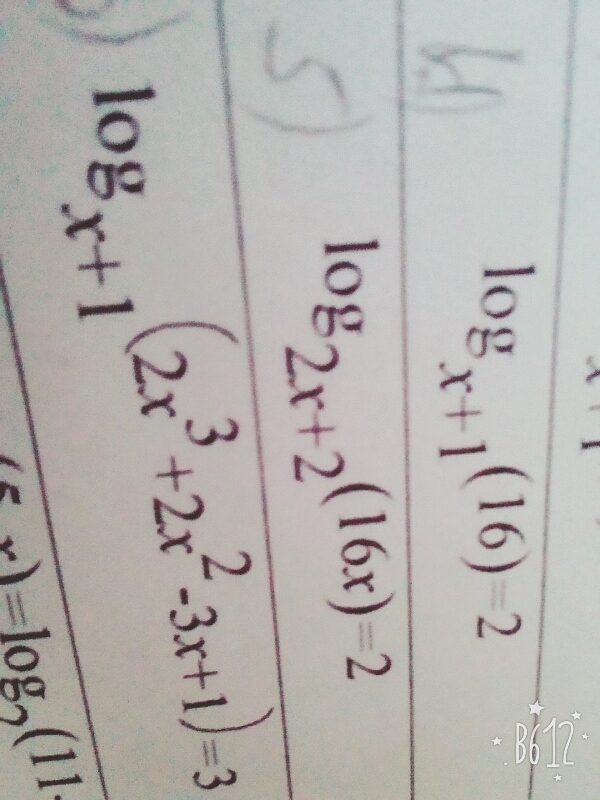 x+1
4.)
log_{x+1}(16)=2
5)
log_{2x+2}(16x)=2
6)
log_{x+1}(2x^3+2x^2-3x+1)=3
x)=log_2(11-
B612